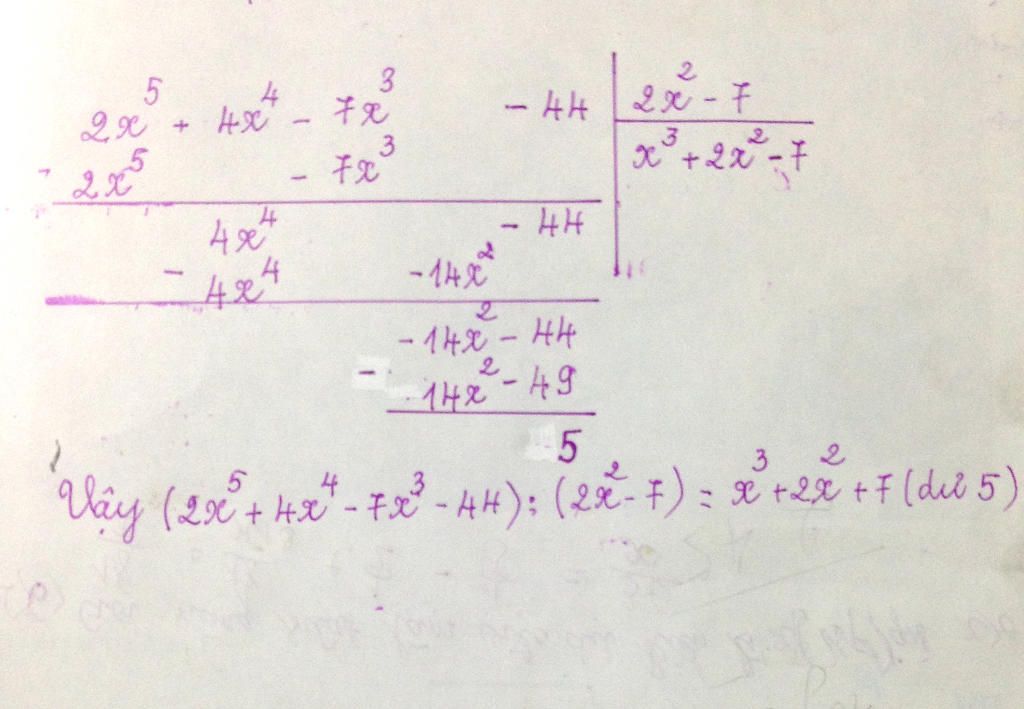 2x⁵ + 4x⁴ - 7x³ - 44 | 2x² - 7
- 2x⁵ - 7x³ | x³ + 2x² - 7
4x⁴ - 44
- 4x⁴ - 14x²
- 14x² - 44
- 14x² - 49
5
Vậy (2x⁵ + 4x⁴ - 7x³ - 44) : (2x² - 7) = x³ + 2x² + 7 (dư 5)